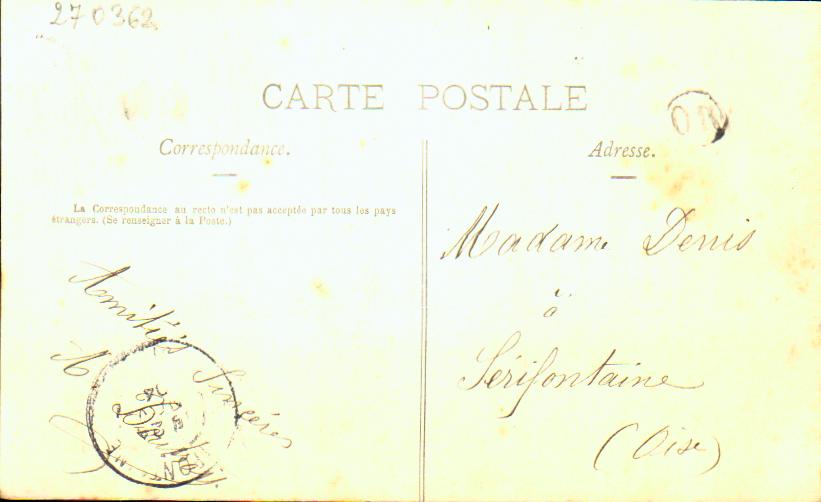 270362
CARTE POSTALE
Correspondance.
La Correspondance au recto n'est pas acceptée par tous les pays
étrangers. (Se renseigner à la Poste.)
Amitiés Sincères
A
Adresse.
Madame Denis
à
Sérifontaine
(Oise)